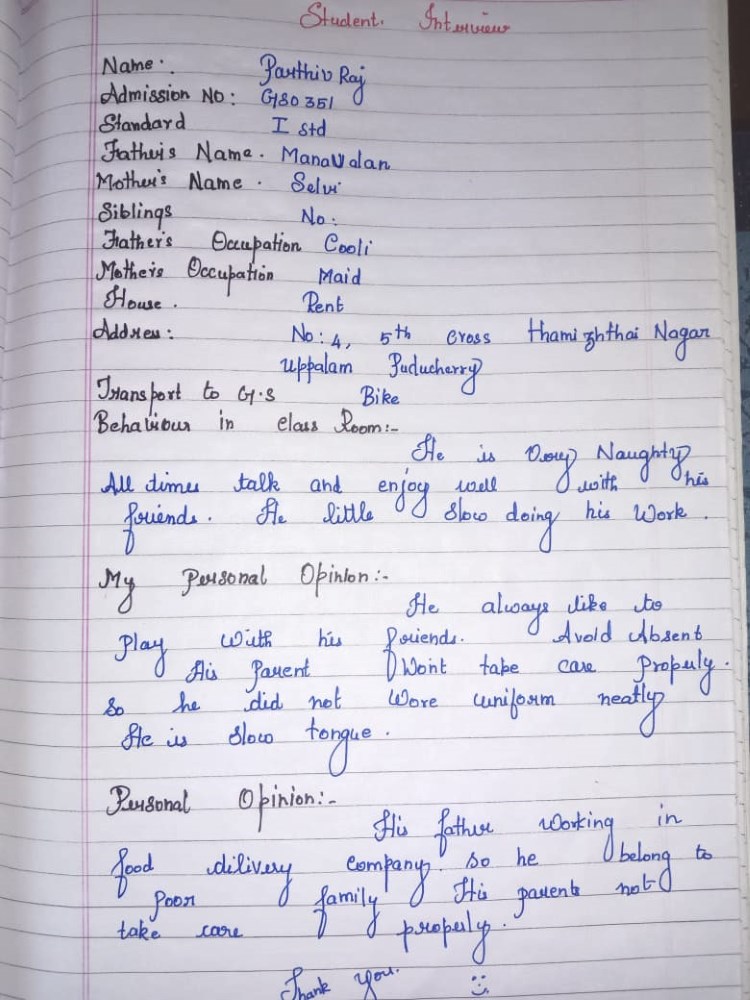 Student. Interview
Name. Parthiv Raj
Admission NO: GSO351
Standard I std
Father's Name. Manavalan
Mother's Name. Selvi
Siblings No:
Father's Occupation Cooli
Mother's Occupation Maid
House. Rent
Address: No: 4, 5th cross thamizhthai Nagar
Uppalam Puducherry
Transport to G.S Bike
Behaviour in class Room:-
He is Very Naughty
All times talk and enjoy well with his
friends. He little slow doing his Work.
My Personal Opinion:-
He always like to
Play With his friends. Avoid Absent
His Parent Wont take care Properly.
So he did not Wore uniform neatly
He is slow tongue.
Personal Opinion:-
His father working in
food dilivery company. so he belong to
Poor family His parents not
take care properly.
Thank You.